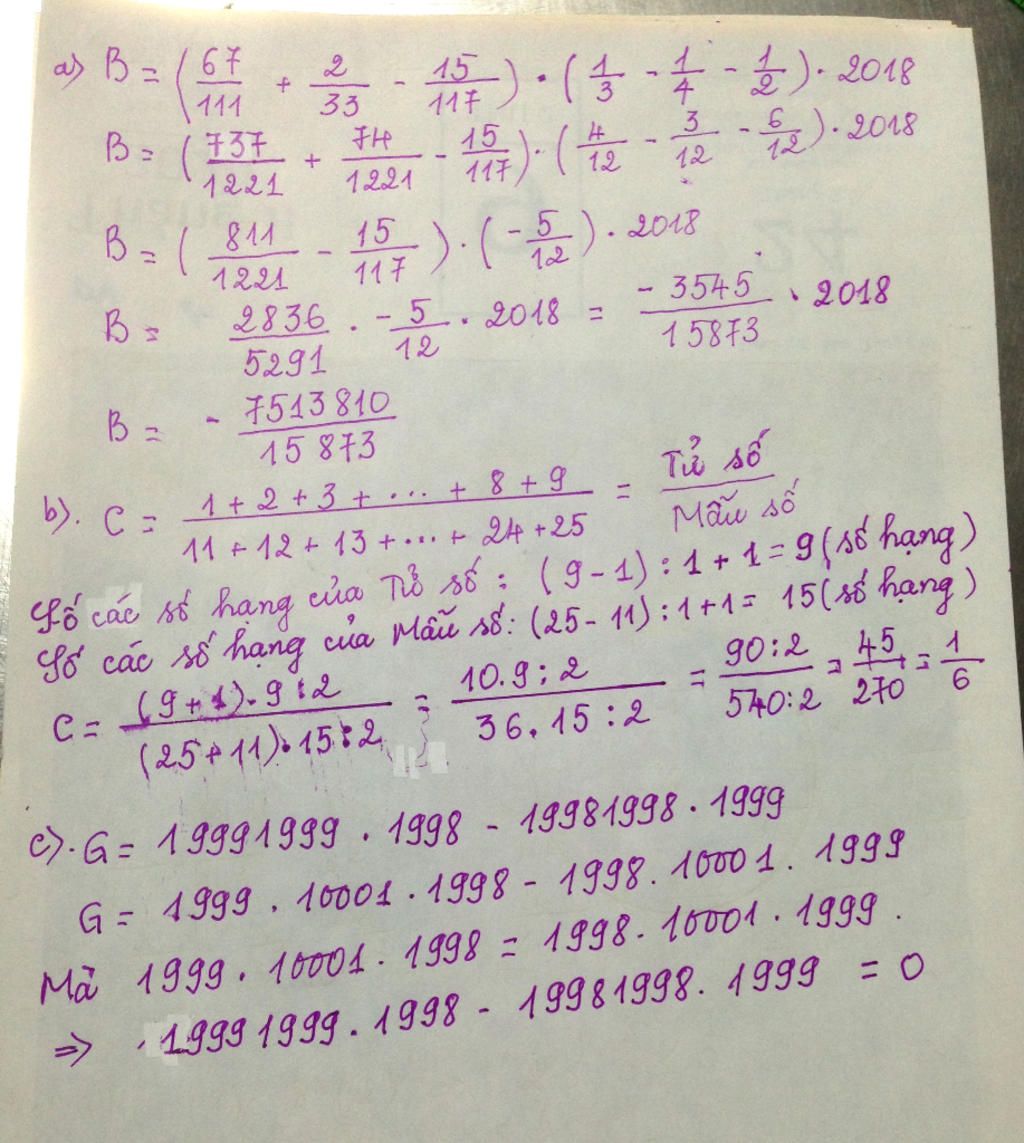 a) B = (67/111 + 2/33 - 15/117) • (1/3 - 1/4 - 1/2) • 2018
B = (737/1221 + 74/1221 - 15/117) • (4/12 - 3/12 - 6/12) • 2018
B = (811/1221 - 15/117) • (-5/12) • 2018
B = 2836/5291 • -5/12 • 2018 = -3545/15873 • 2018
B = -7513810/15873
b). C = (1 + 2 + 3 + ... + 8 + 9)/(11 + 12 + 13 + ... + 24 + 25) = Tử số/Mẫu số
Số các số hạng của Tử số : (9 - 1) : 1 + 1 = 9 (số hạng)
Số các số hạng của Mẫu số : (25 - 11) : 1 + 1 = 15 (số hạng)
C = ((9 + 1) • 9 : 2)/((25 + 11) • 15 : 2) = (10 . 9 : 2)/(36 . 15 : 2) = (90 : 2)/(540 : 2) = 45/270 = 1/6
c). G = 19991999 • 1998 - 19981998 • 1999
G = 1999 . 10001 . 1998 - 1998 . 10001 . 1999
Mà 1999 . 10001 . 1998 = 1998 . 10001 . 1999 .
=> 19991999 . 1998 - 19981998 . 1999 = 0